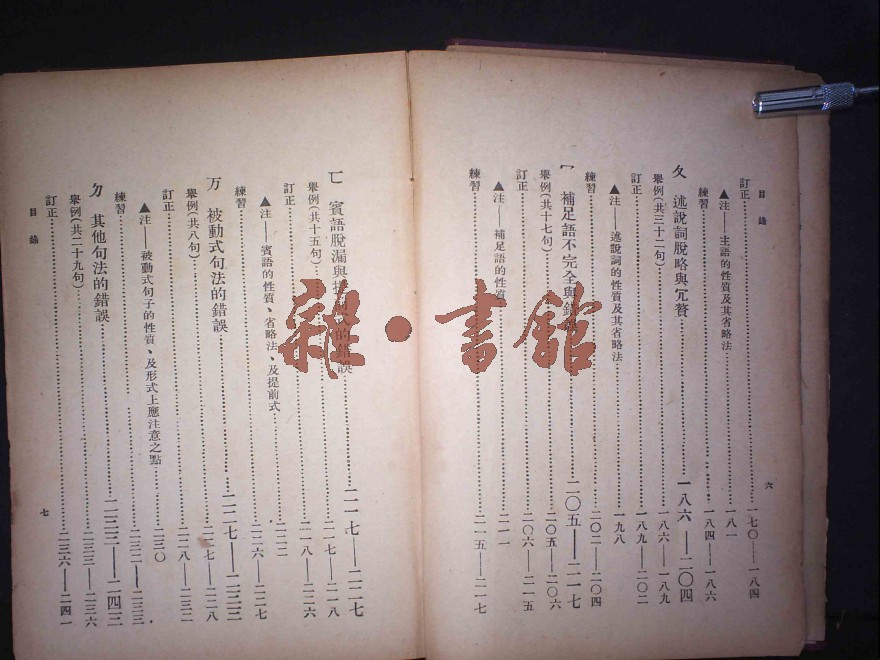 目錄
六
訂正……一七〇——一八四
▲注——主語的性質及其省略法……一八一
練習……一八四——一八六
ㄆ 述說詞脫略與冗贅……一八六——二〇四
舉例(共三十二句)……一八六——一八九
訂正……一八九——二〇二
▲注——述說詞的性質及其省略法……一九八
練習……二〇二——二〇四
ㄇ 補足語不完全與錯……二〇五——二一七
舉例(共十七句)……二〇五——二〇六
訂正……二〇六——二一五
▲注——補足語的性質……二一一
練習……二一五——二一七
ㄈ 賓語脫漏與提前式的錯誤……二一七——二二七
舉例(共十五句)……二一七——二一八
訂正……二一八——二二六
▲注——賓語的性質、省略法、及提前式……二二二
練習……二二六——二二七
万 被動式句法的錯誤……二二七——二三三
舉例(共八句)……二二七——二二八
訂正……二二八——二三二
▲注——被動式句子的性質、及形式上應注意之點……二三〇
練習……二三二——二三三
ㄉ 其他句法的錯誤……二三三——二四二
舉例(共二十九句)……二三三——二三六
訂正……二三六——二四一
目錄
七
雜·書館